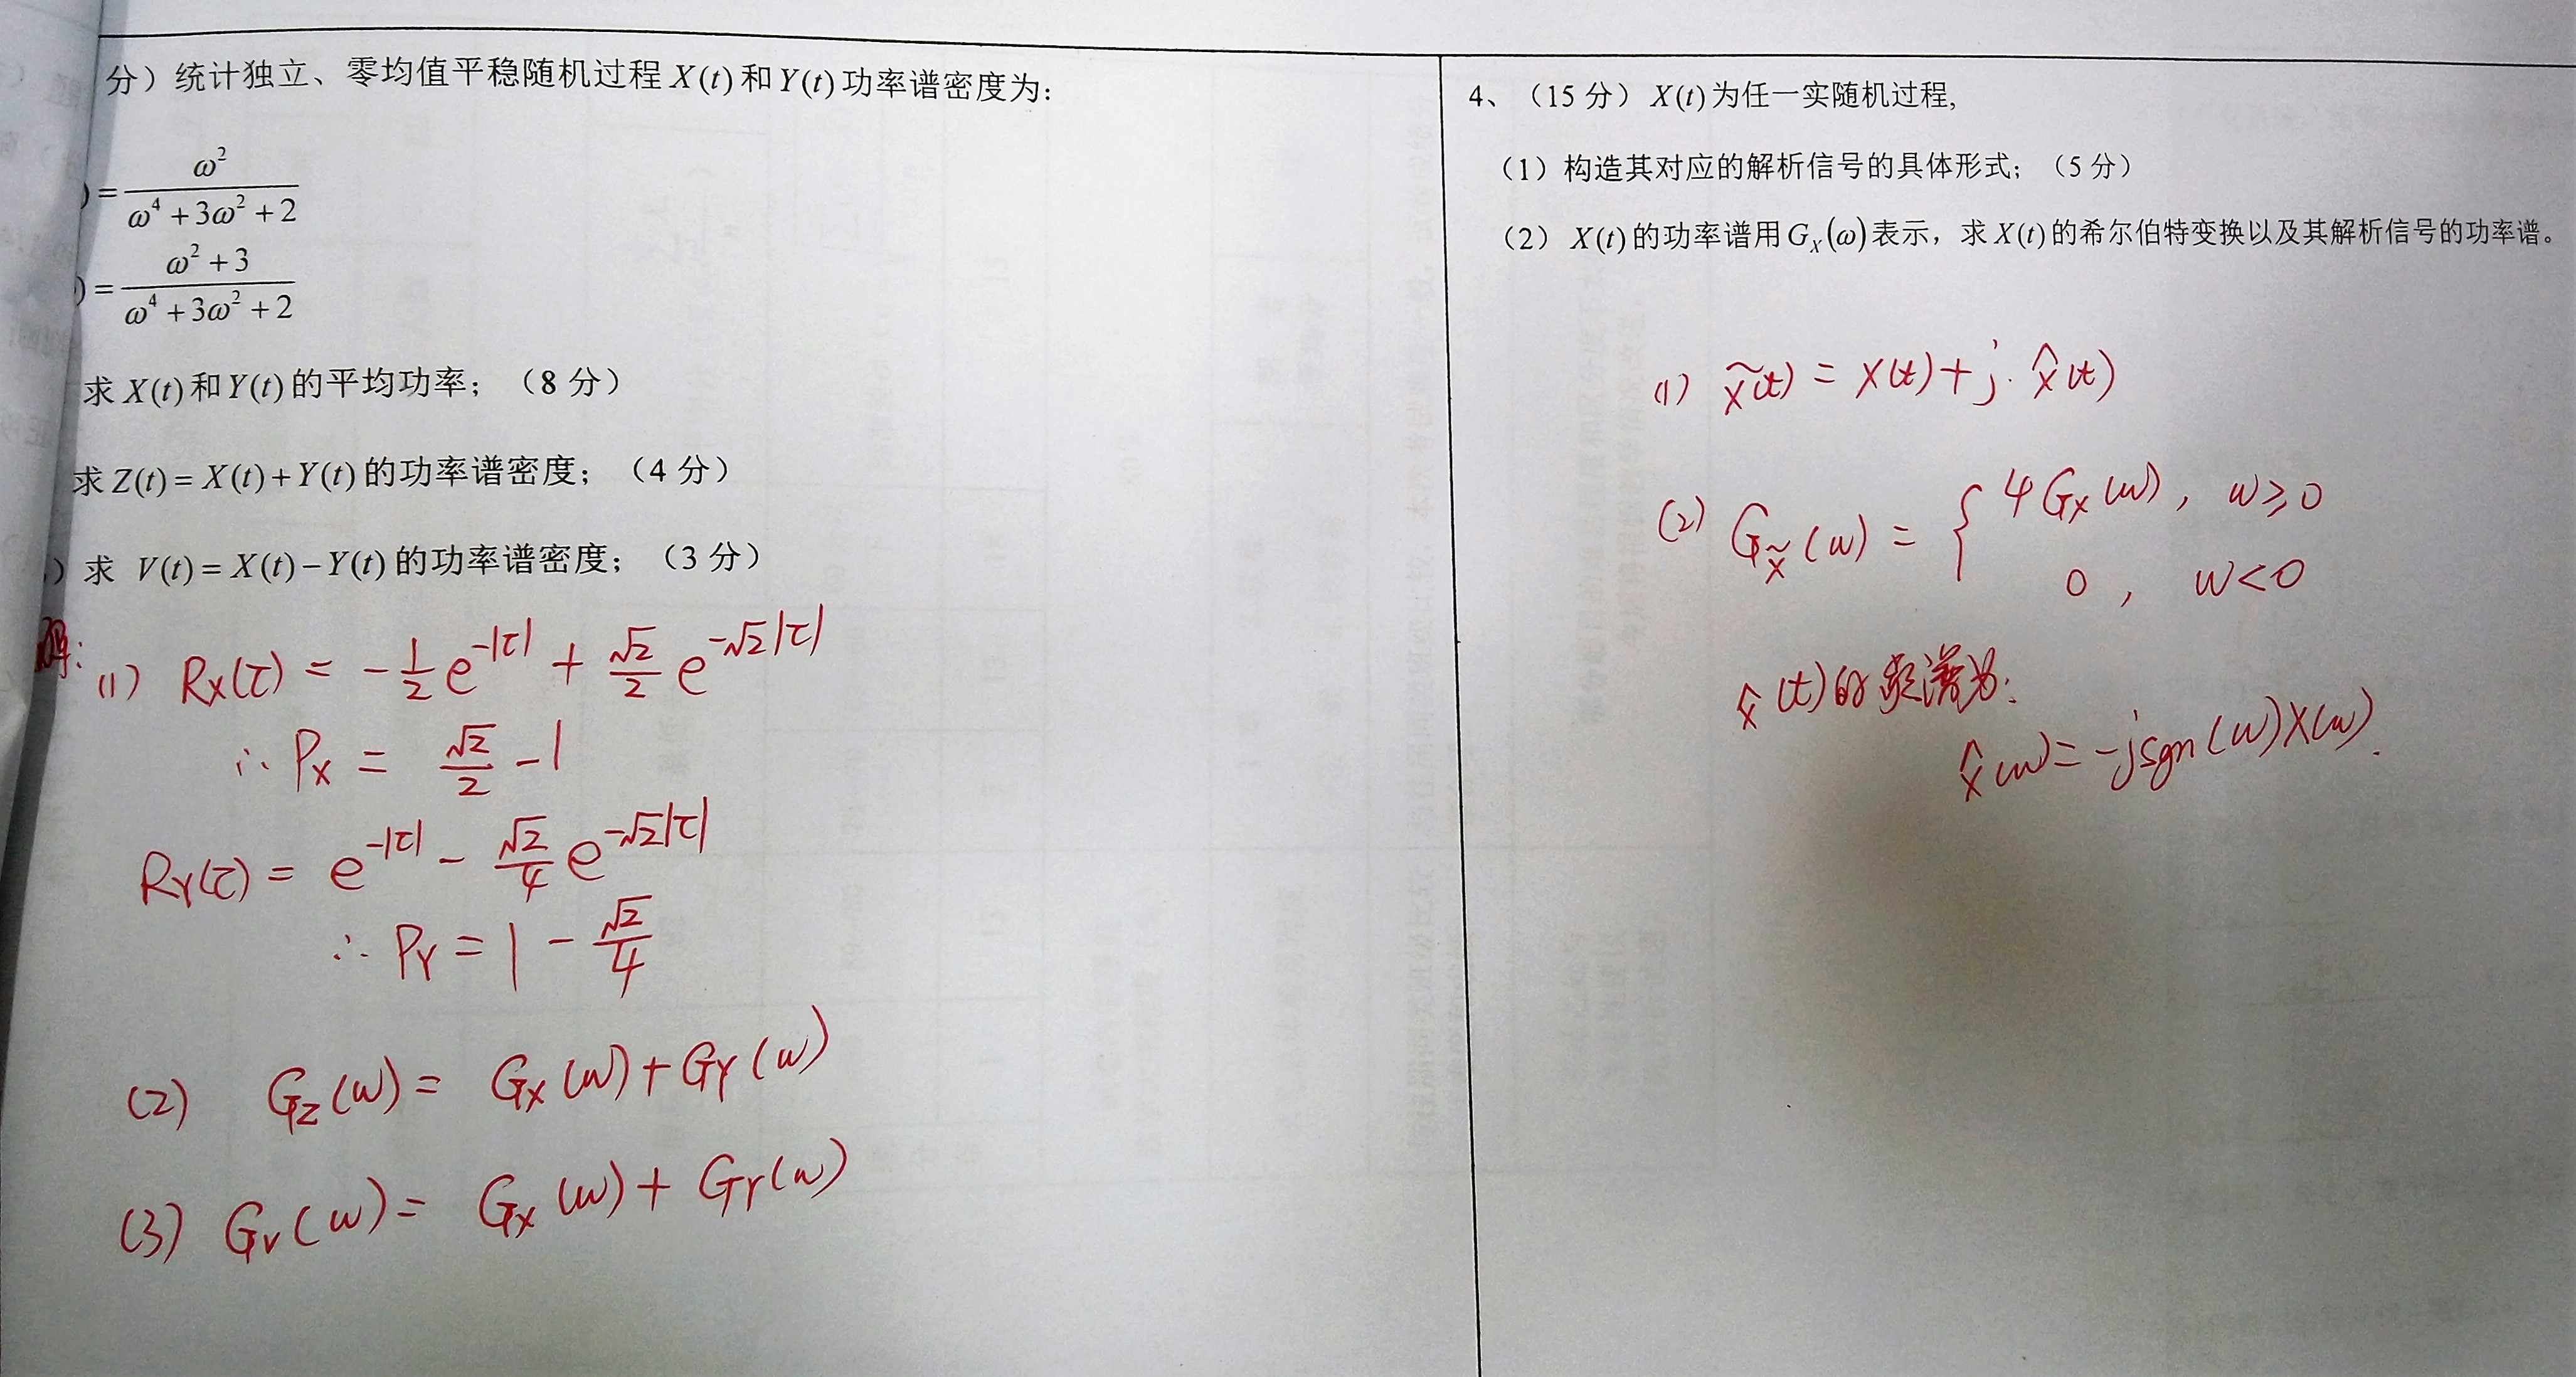 分）统计独立、零均值平稳随机过程 X(t) 和 Y(t) 功率谱密度为：
) = ω² / (ω⁴ + 3ω² + 2)
) = (ω² + 3) / (ω⁴ + 3ω² + 2)
求 X(t) 和 Y(t) 的平均功率；（8 分）
求 Z(t) = X(t) + Y(t) 的功率谱密度；（4 分）
）求 V(t) = X(t) − Y(t) 的功率谱密度；（3 分）
解：(1) R_X(τ) = −1/2 e^{−|τ|} + √2/2 e^{−√2|τ|}
∴ P_X = √2/2 − 1
R_Y(τ) = e^{−|τ|} − √2/4 e^{−√2|τ|}
∴ P_Y = 1 − √2/4
(2) G_Z(ω) = G_X(ω) + G_Y(ω)
(3) G_V(ω) = G_X(ω) + G_Y(ω)
4、（15 分）X(t) 为任一实随机过程,
（1）构造其对应的解析信号的具体形式；（5 分）
（2）X(t) 的功率谱用 G_X(ω) 表示，求 X(t) 的希尔伯特变换以及其解析信号的功率谱。
(1) X̃(t) = X(t) + j·X̂(t)
(2) G_X̃(ω) = { 4G_X(ω), ω ≥ 0
0, ω < 0
X̂(t) 的频谱为：
X̂(ω) = −jsgn(ω)X(ω).